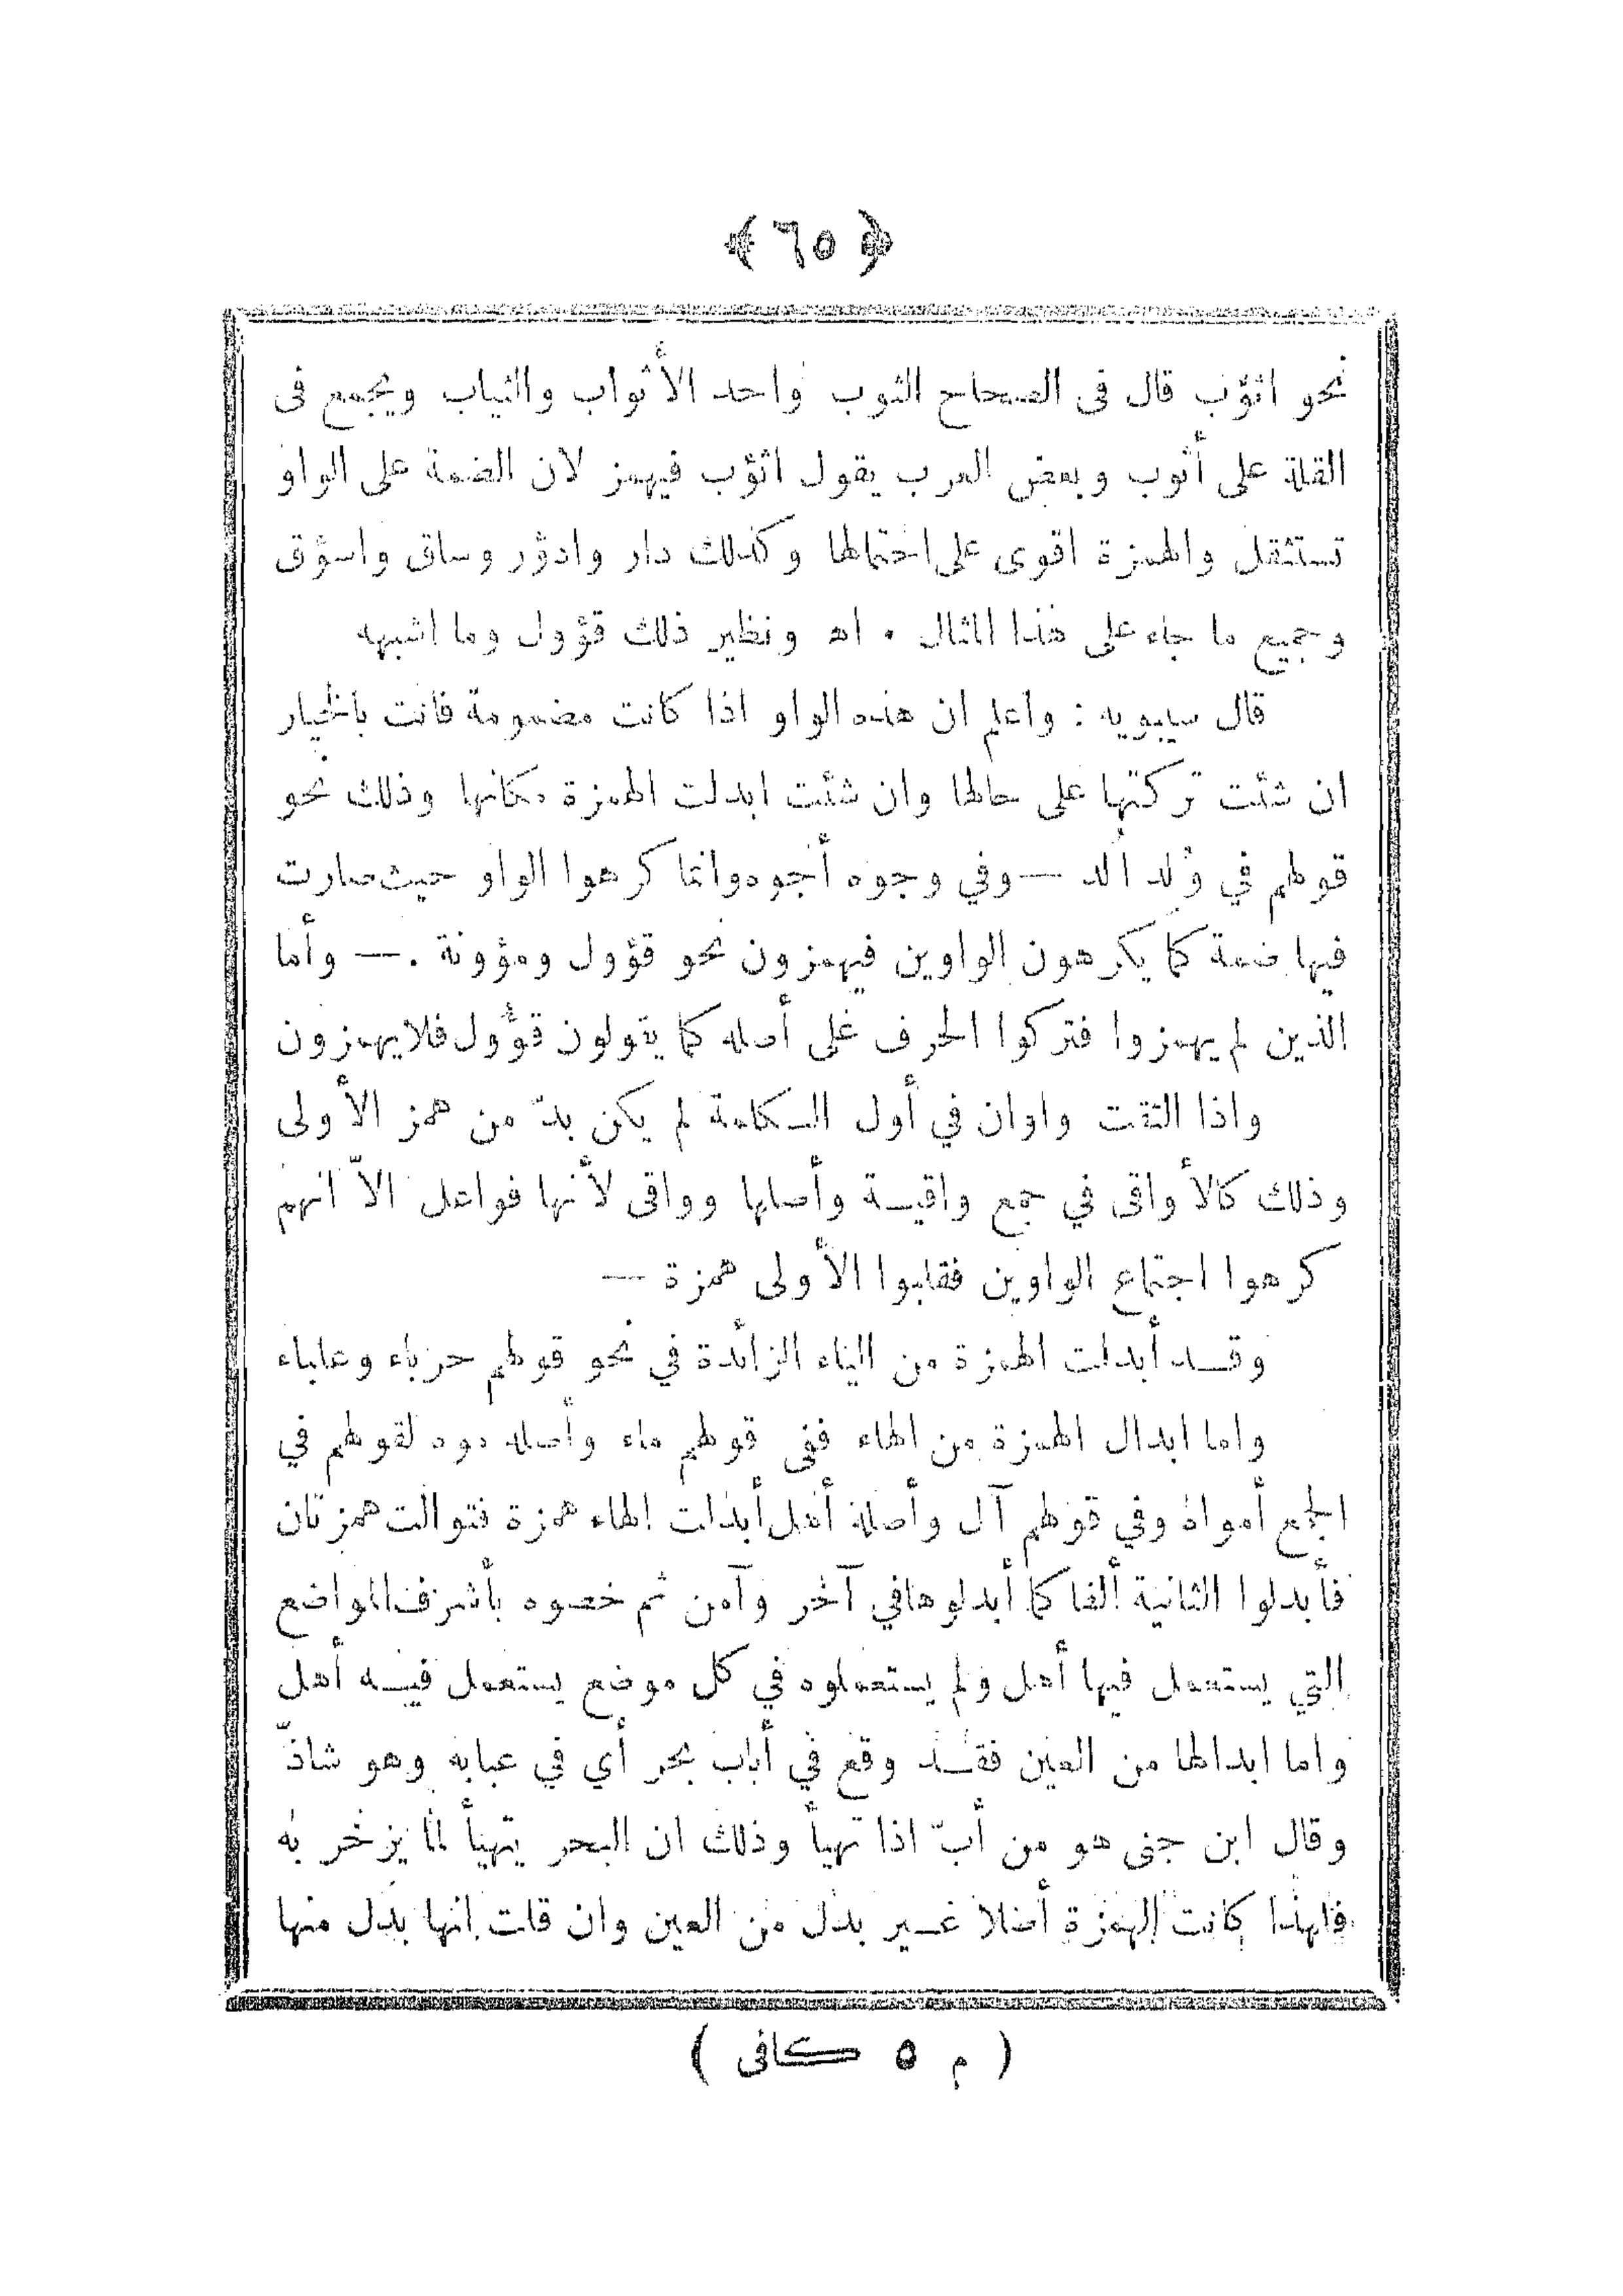 ﴿ ٦٥ ﴾
نحو اثؤب قال فى الصحاح الثوب واحد الأثواب والثياب ويجمع فى
القلة على أثوب وبعض العرب يقول اثؤب فيهمز لان الضمة على الواو
تستثقل والهمزة اقوى على احتمالها وكذلك دار وادؤر وساق واسؤق
وجميع ما جاء على هذا المثال ٠ اه ونظير ذلك قؤول وما اشبهه
قال سيبويه : واعلم ان هذه الواو اذا كانت مضمومة فانت بالخيار
ان شئت تركتها على حالها وان شئت ابدلت الهمزة مكانها وذلك نحو
قولهم في وُلد الد — وفي وجوه أجوه وانما كرهوا الواو حيث صارت
فيها ضمة كما يكرهون الواوين فيهمزون نحو قؤول ومؤونة .— وأما
الذين لم يهمزوا فتركوا الحرف على أصله كما يقولون قوُول فلا يهمزون
واذا التقت واوان في أول الكلمة لم يكن بدّ من همز الأولى
وذلك كالأواقى في جمع واقية وأصلها وواقى لأنها فواعل الاّ انهم
كرهوا اجتماع الواوين فقلبوا الأولى همزة —
وقد أبدلت الهمزة من الياء الزائدة في نحو قولهم حرباء وعلباء
واما ابدال الهمزة من الهاء ففى قولهم ماء وأصله موه لقولهم في
الجمع أمواه وفي قولهم آل وأصله أهل أبدلت الهاء همزة فتوالت همزتان
فأبدلوا الثانية ألفا كما أبدلوها في آخر وآمن ثم خصوه بأشرف المواضع
التي يستعمل فيها أهل ولم يستعملوه في كل موضع يستعمل فيه أهل
واما ابدالها من العين فقد وقع في أباب بحر أي في عبابه وهو شاذّ
وقال ابن جنى هو من أبّ اذا تهيأ وذلك ان البحر يتهيأ لما يزخر به
فلهذا كانت الهمزة أصلا غير بدل من العين وان قلت انها بدل منها
( م ٥ كافى )